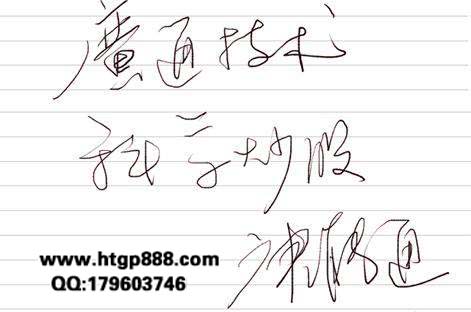 廣通技术
科学炒股
通
www.htgp888.com
QQ:179603746